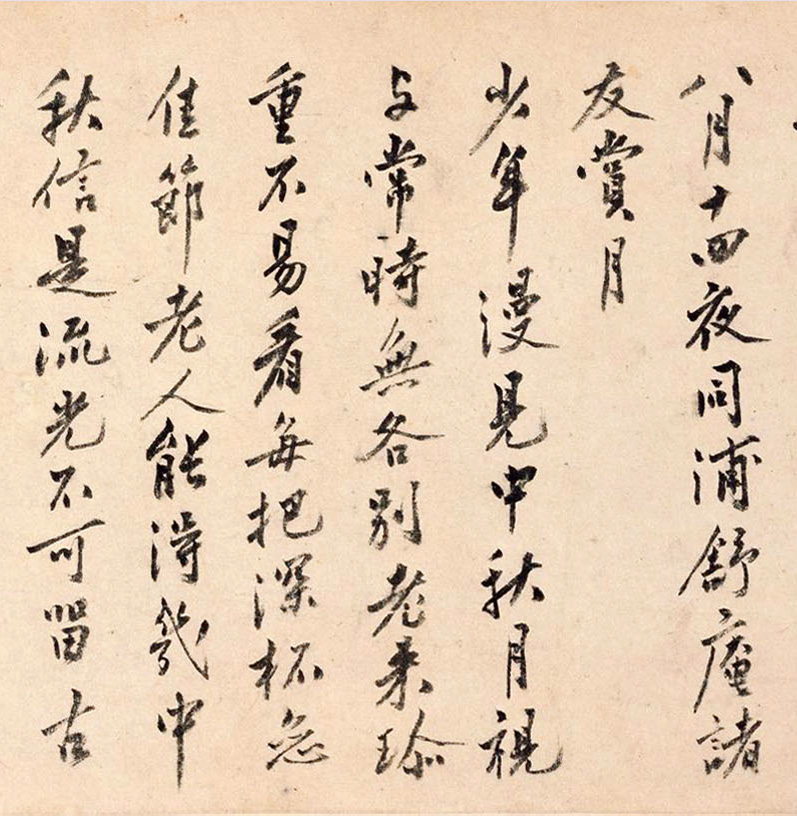 八月十四夜同浦舒庵諸
友賞月
少年漫見中秋月視
与常時無各別老来珍
重不易看每把深杯
佳節老人能得幾中
秋信是流光不可留古